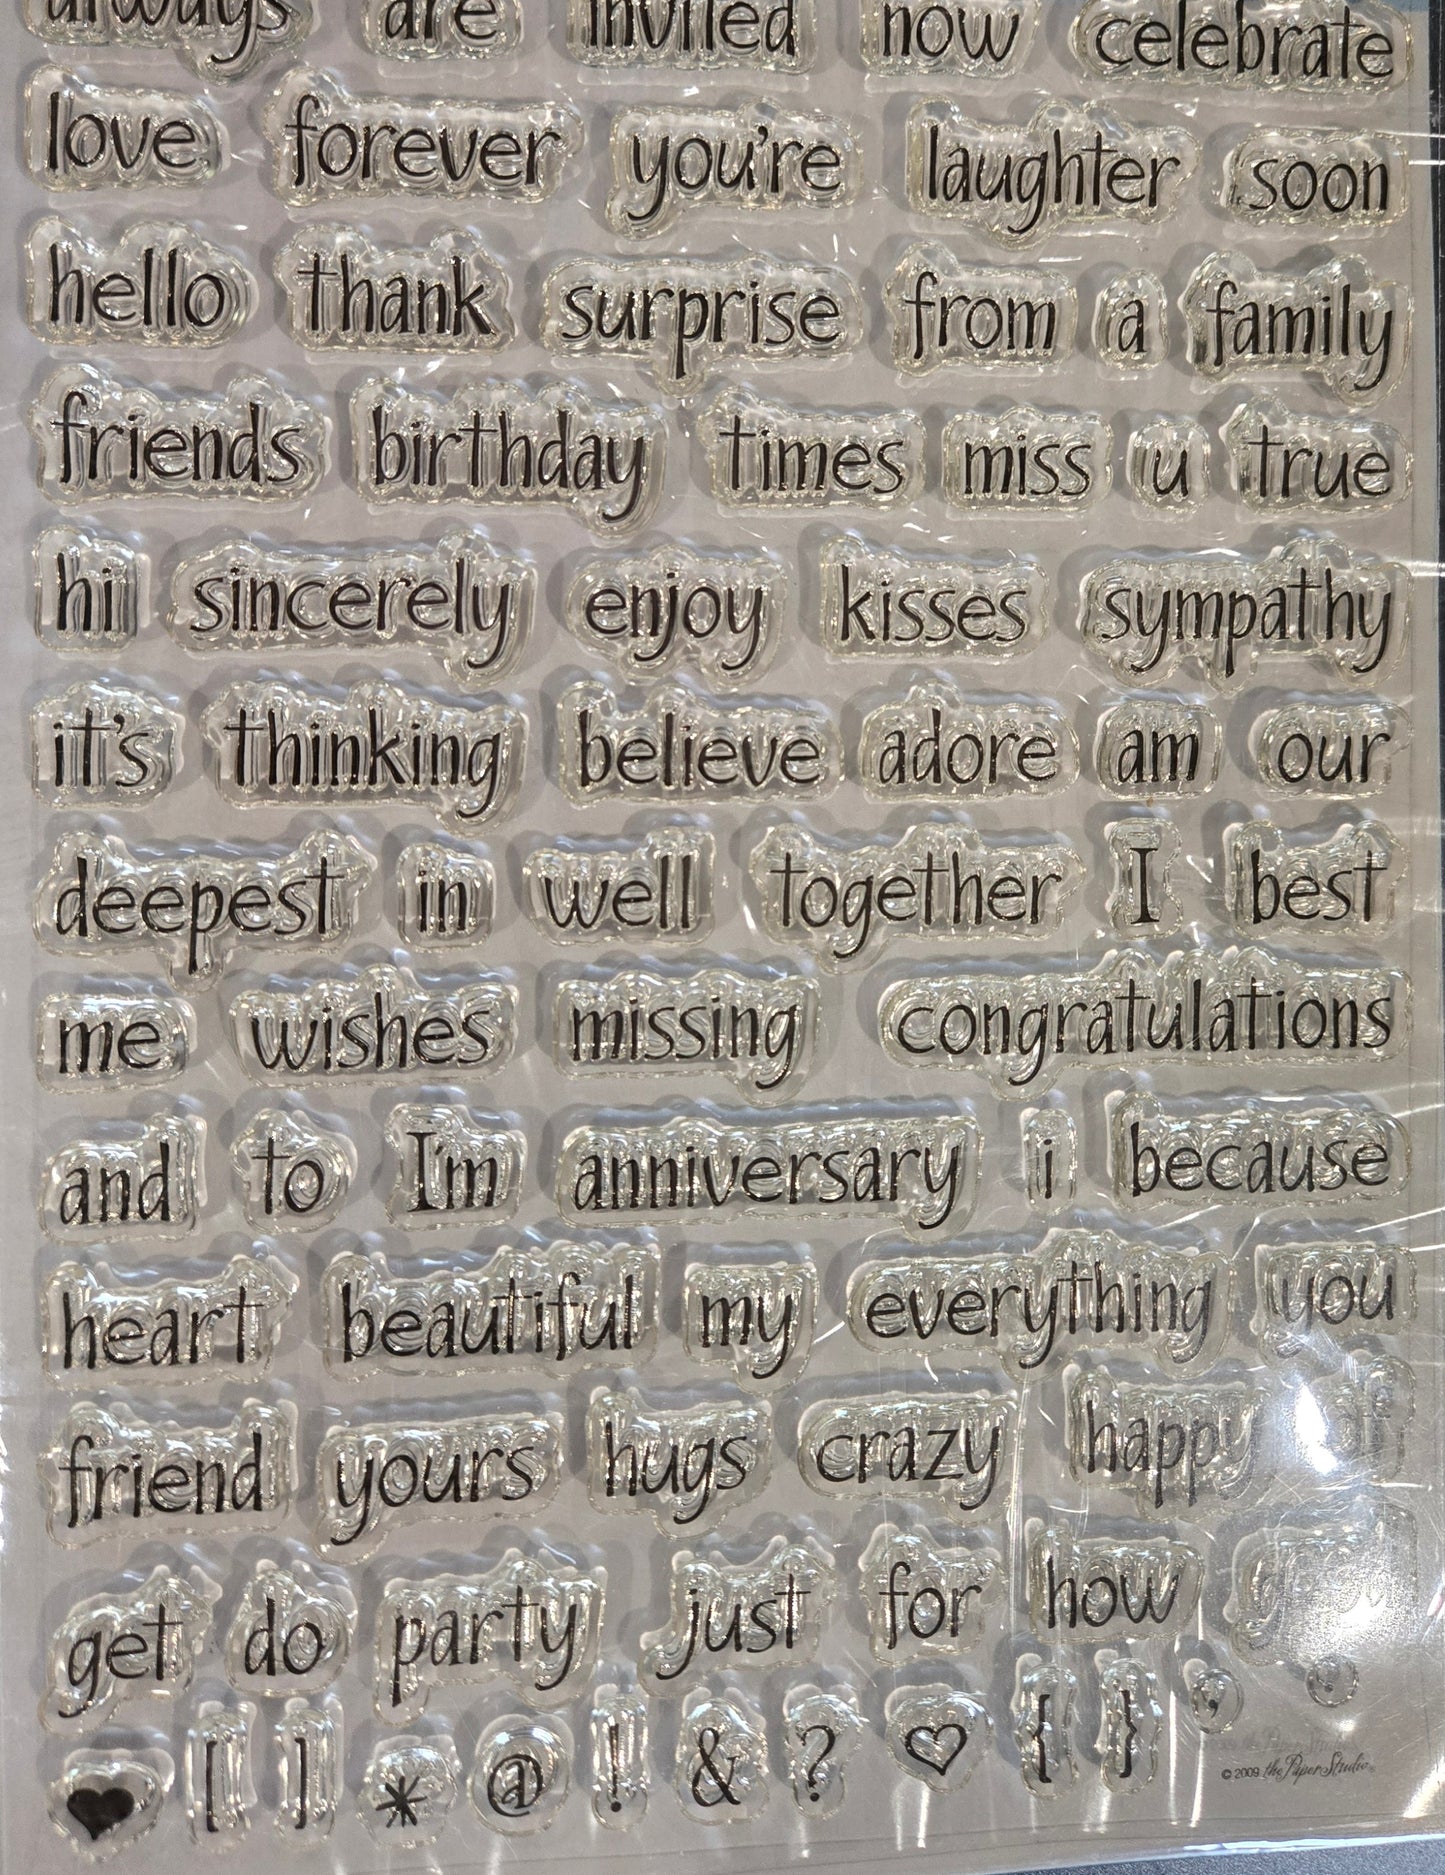 always are invited now celebrate
love forever you're laughter soon
hello thank surprise from a family
friends birthday times miss u true
hi sincerely enjoy kisses sympathy
it's thinking believe adore am our
deepest in well together I best
me wishes missing congratulations
and to I'm anniversary i because
heart beautiful my everything you
friend yours hugs crazy happy of
get do party just for how
♥ [ ] * @ ! & ? ♡ { } ,
© 2009 the Paper Studio®